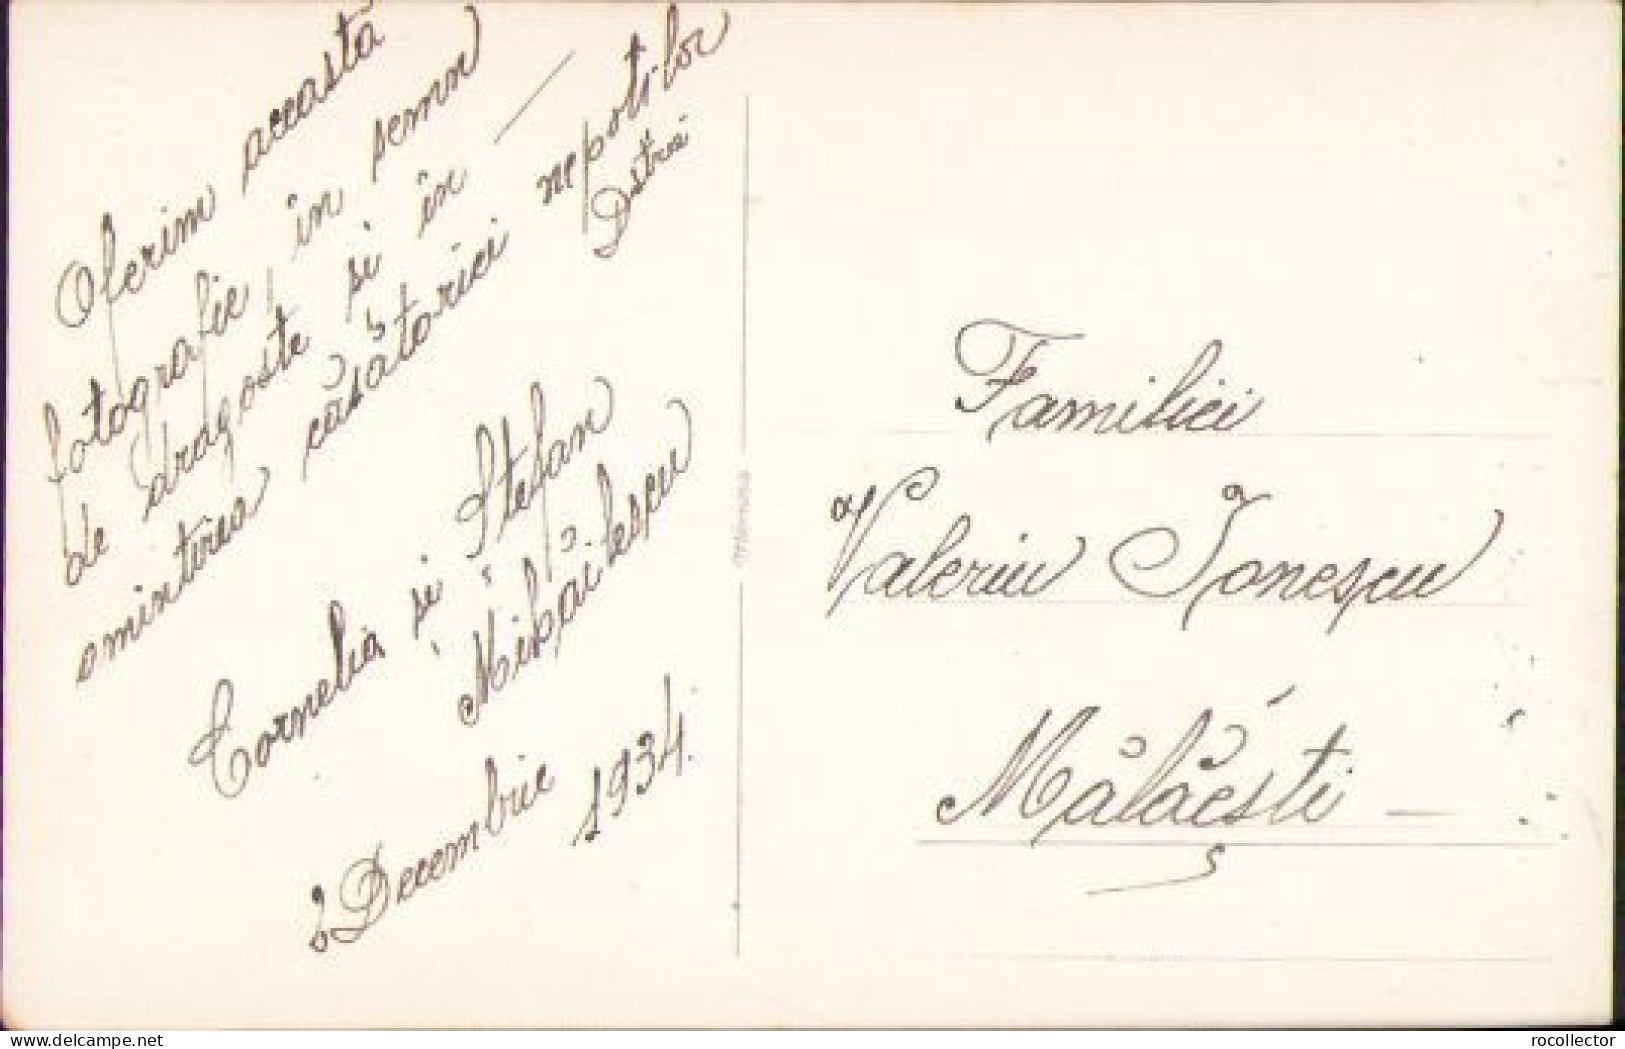 Oferim aceasta
fotografie, in semn
de dragoste și in —
amintirea căsătoriei nepoților
D-stră
Cornelia și Ștefan
Mihăilescu
8 Decembrie 1934.
Familiei
Valeriu Ionescu
Mălăești —
delcampe.net
rocollector